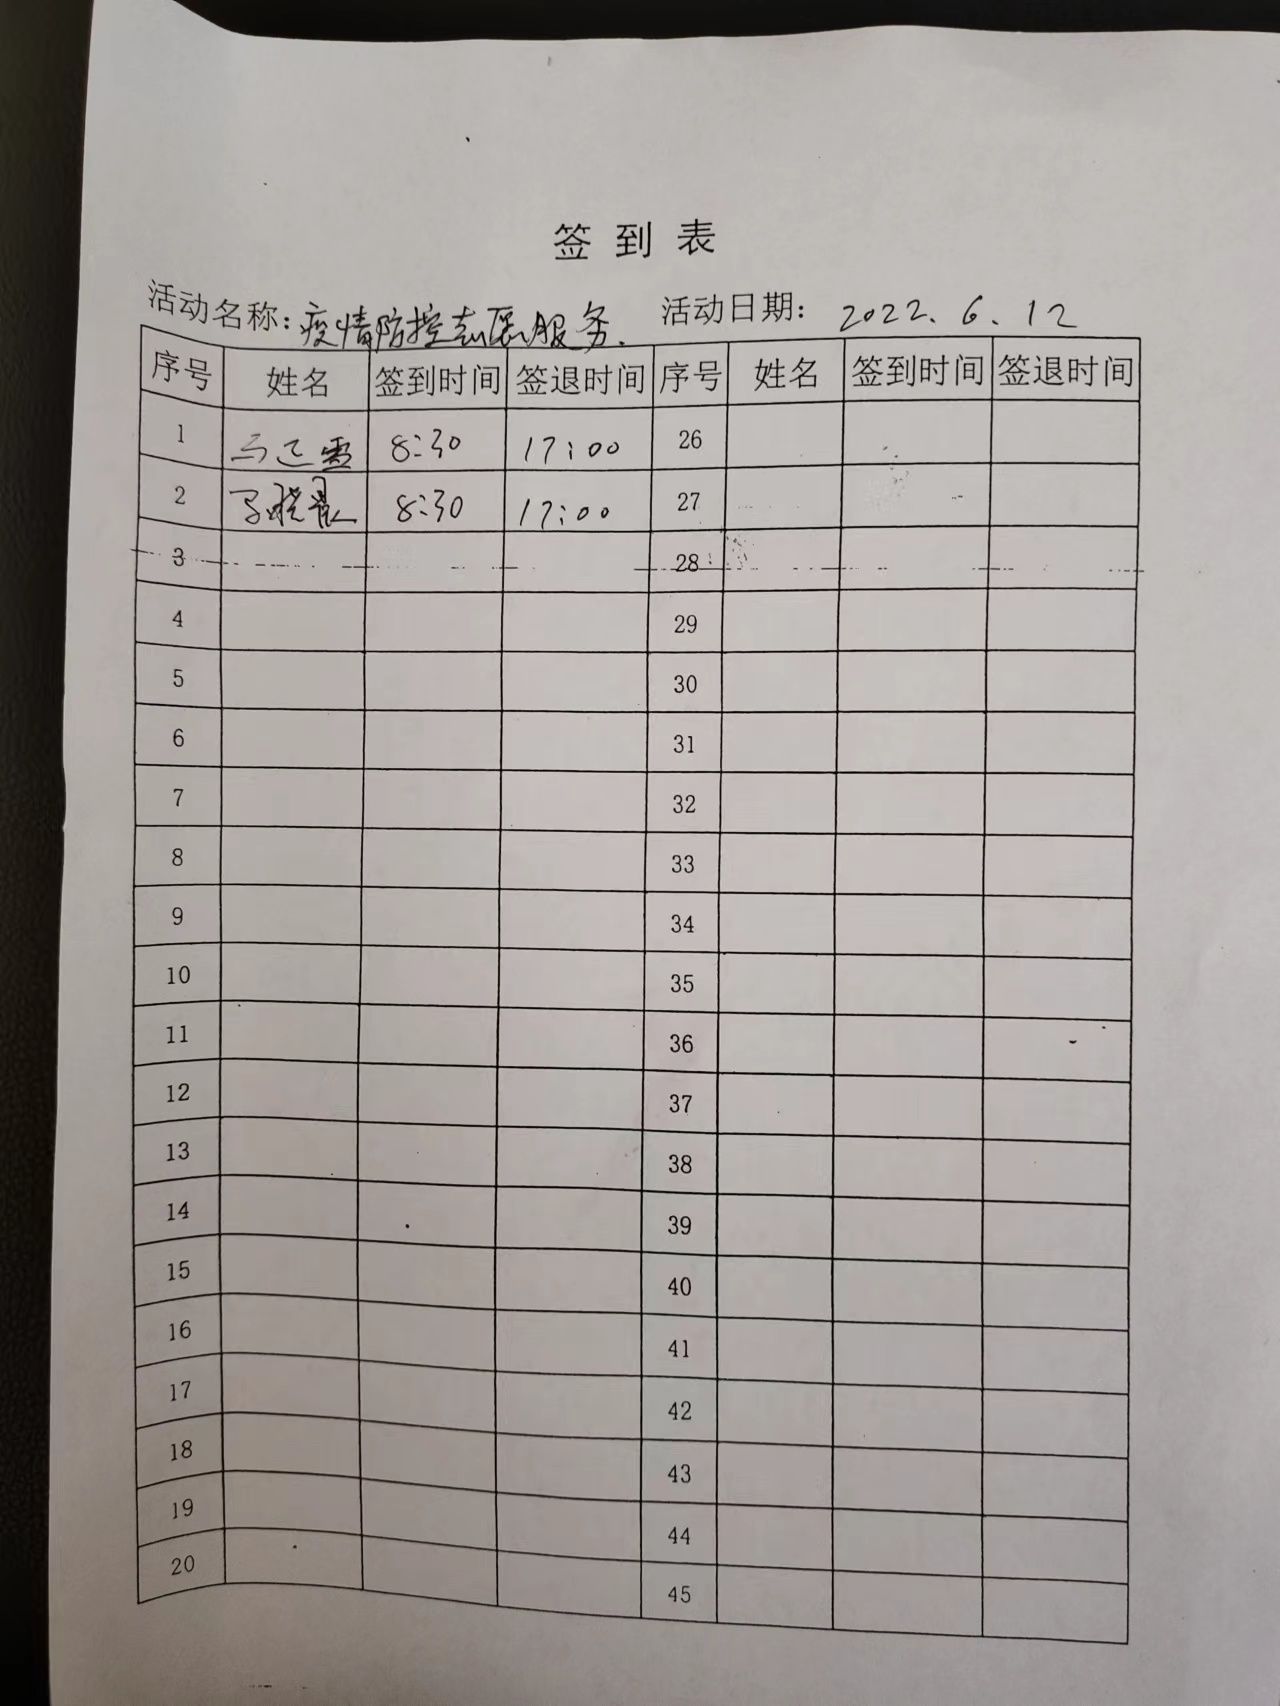 签到表
活动名称：疫情防控志愿服务. 活动日期：2022.6.12
序号 姓名 签到时间 签退时间 序号 姓名 签到时间 签退时间
1 8:30 17:00 26
2 8:30 17:00 27
3 28
4 29
5 30
6 31
7 32
8 33
9 34
10 35
11 36
12 37
13 38
14 39
15 40
16 41
17 42
18 43
19 44
20 45